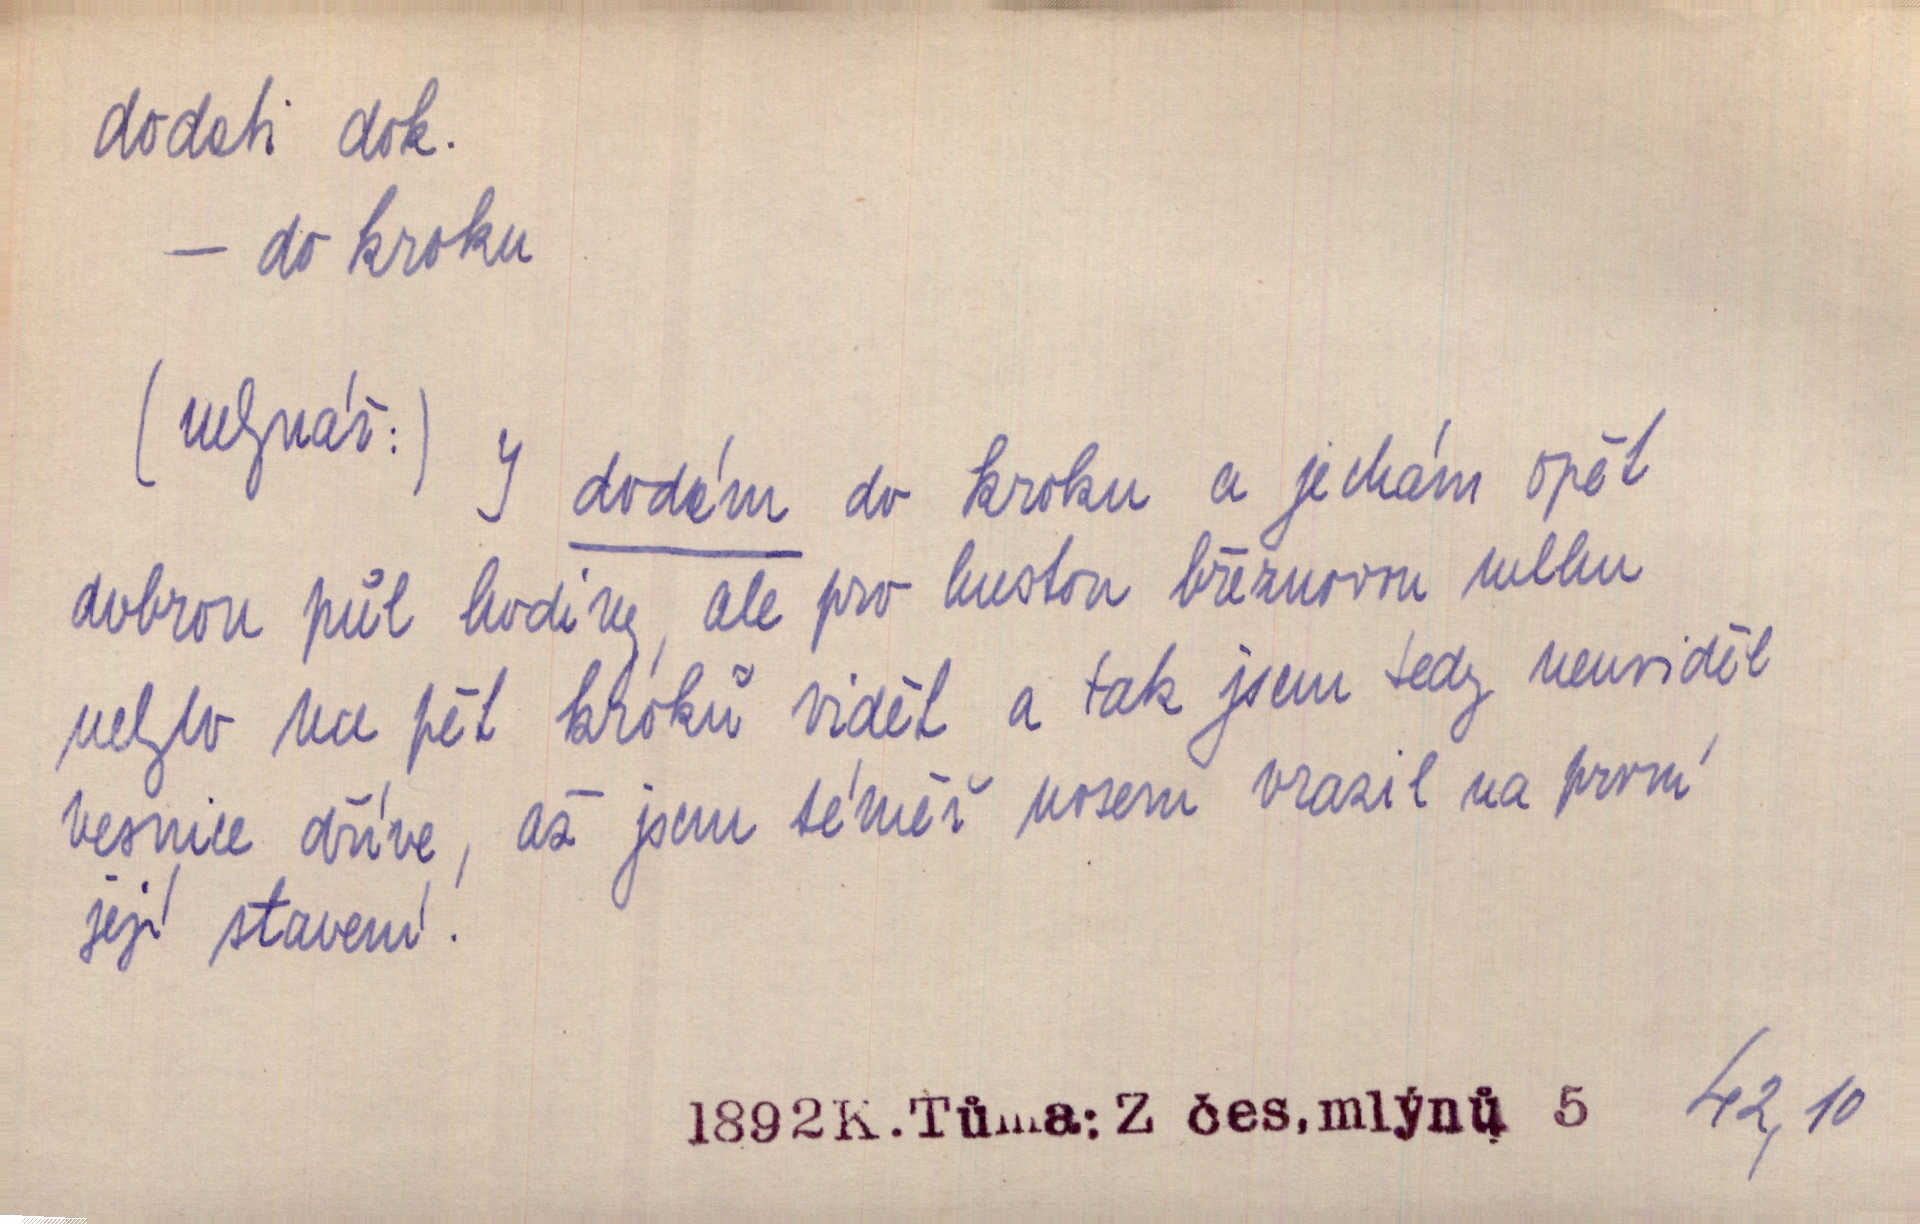 dodati dok.
— do kroku
(mlynář:) I dodám do kroku a jechám opět
dobrou půl hodiny, ale pro hustou březnovou mlhu
nelzlo na pět kroků vidět a tak jsem tedy neuviděl
vesnice dříve, až jsem téměř nosem vrazil na první
její stavení.
1892 K. Tůma: Z čes. mlýnů 5 42, 10